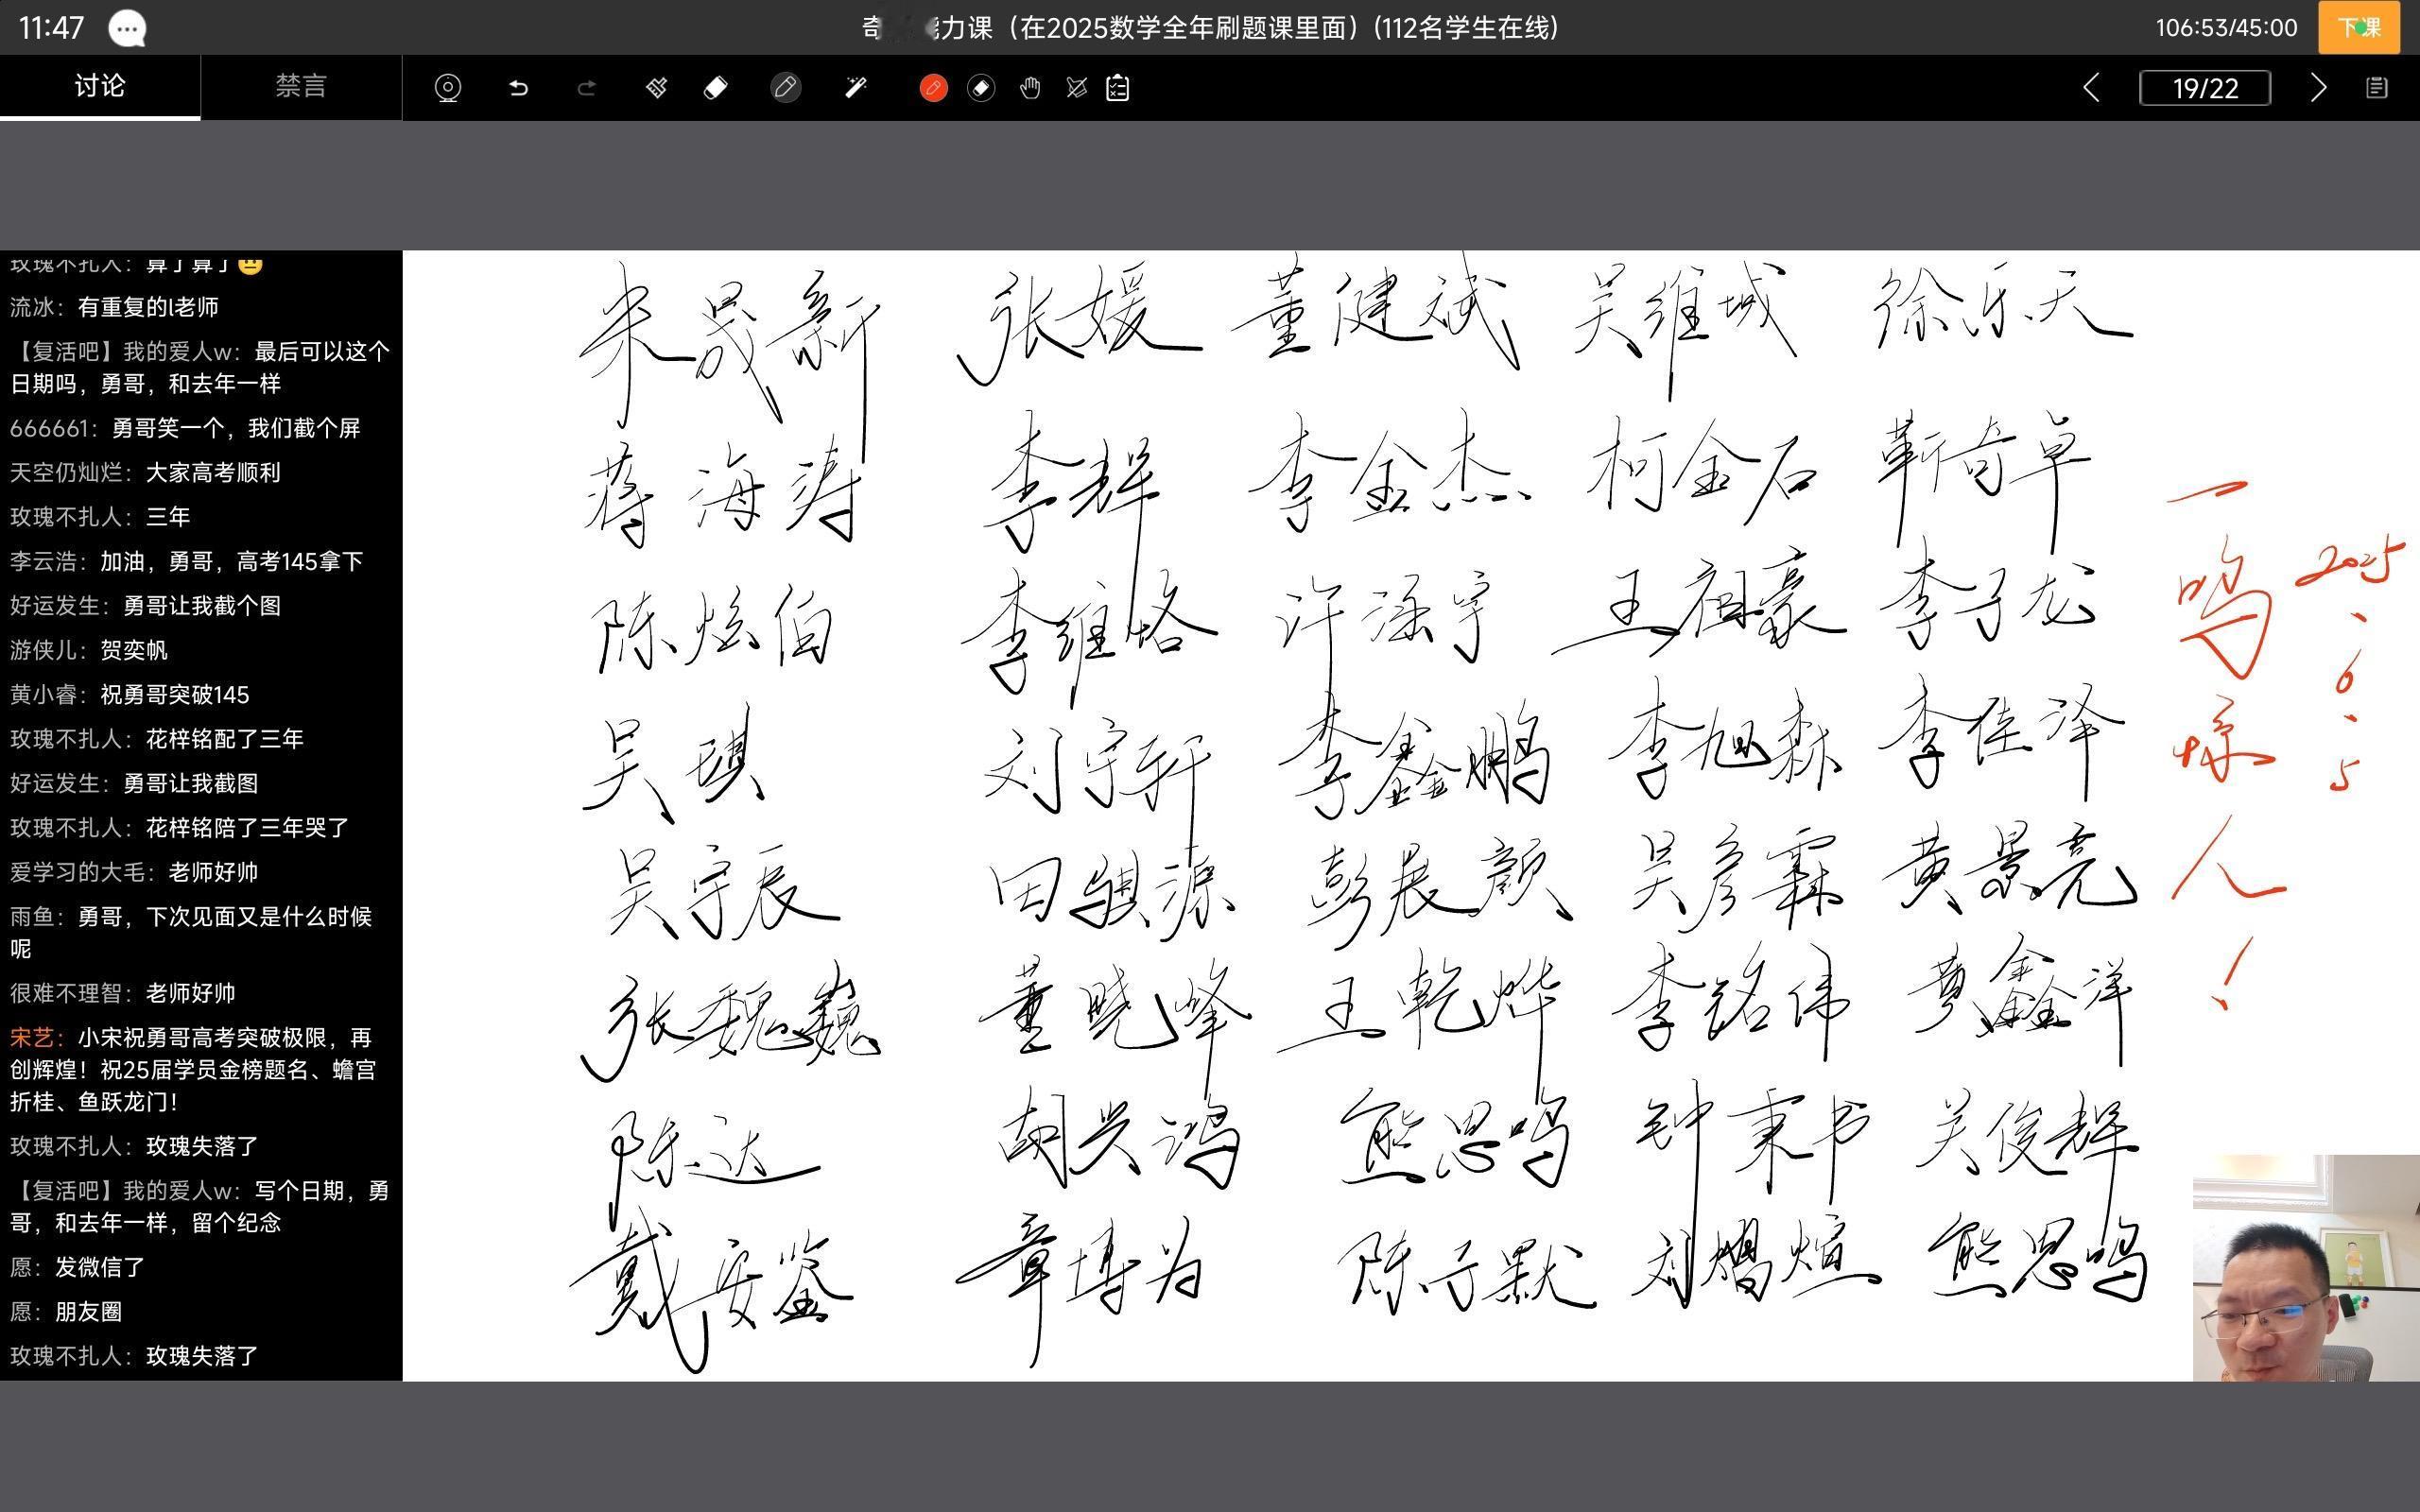 11:47
力课（在2025数学全年刷题课里面）(112名学生在线)
106:53/45:00
下课
讨论
禁言
19/22
玫瑰不扎人：算了算了😐
流冰：有重复的l老师
【复活吧】我的爱人w：最后可以这个
日期吗，勇哥，和去年一样
666661：勇哥笑一个，我们截个屏
天空仍灿烂：大家高考顺利
玫瑰不扎人：三年
李云浩：加油，勇哥，高考145拿下
好运发生：勇哥让我截个图
游侠儿：贺奕帆
黄小睿：祝勇哥突破145
玫瑰不扎人：花梓铭配了三年
好运发生：勇哥让我截图
玫瑰不扎人：花梓铭陪了三年哭了
爱学习的大毛：老师好帅
雨鱼：勇哥，下次见面又是什么时候
呢
很难不理智：老师好帅
宋艺：小宋祝勇哥高考突破极限，再
创辉煌！祝25届学员金榜题名、蟾宫
折桂、鱼跃龙门！
玫瑰不扎人：玫瑰失落了
【复活吧】我的爱人w：写个日期，勇
哥，和去年一样，留个纪念
愿：发微信了
愿：朋友圈
玫瑰不扎人：玫瑰失落了
朱晟新 张媛 董健斌 吴维城 徐乐天
蒋海涛 李辉 李金杰 柯金石 靳奇卓
陈炫伯 李维烙 许涵宇 王祖豪 李子龙
吴琪 刘宇轩 李鑫鹏 李旭森 李佳泽
吴宇辰 田骐源 彭晨颜 吴彦霖 黄景亮
张魏巍 董晓峰 王乾烨 李铭伟 鑫洋
陈达 胡兴鸿 熊思鸣 钟秉书 吴俊辉
戴安鉴 章博为 陈子默 刘煊 熊思鸣
一鸣惊人！
2025、6、5